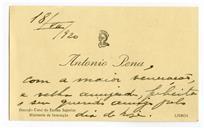 18/
1920
Antonio Pena
com a maior veneração
e velha amizade, felicita
o seu querido amigo pelo
dia de hoje.
Direcção Geral do Ensino Superior
Ministerio da Instrução
LISBOA